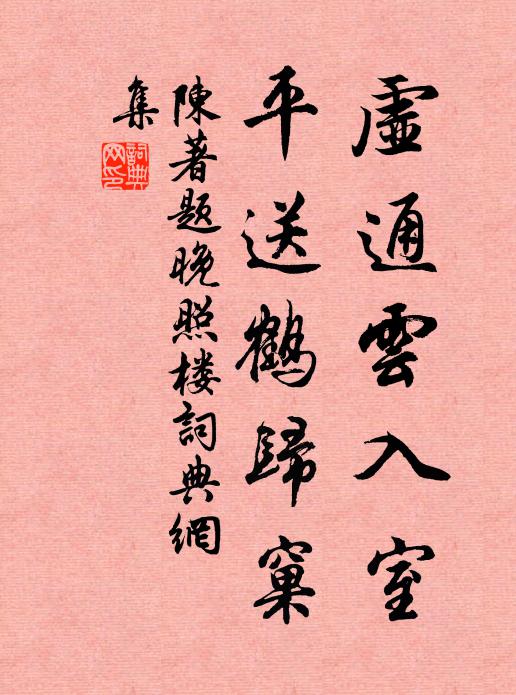 虛通雲入室
平送鶴歸窠
陳著題晚照楼詞典網
集
詞典网印